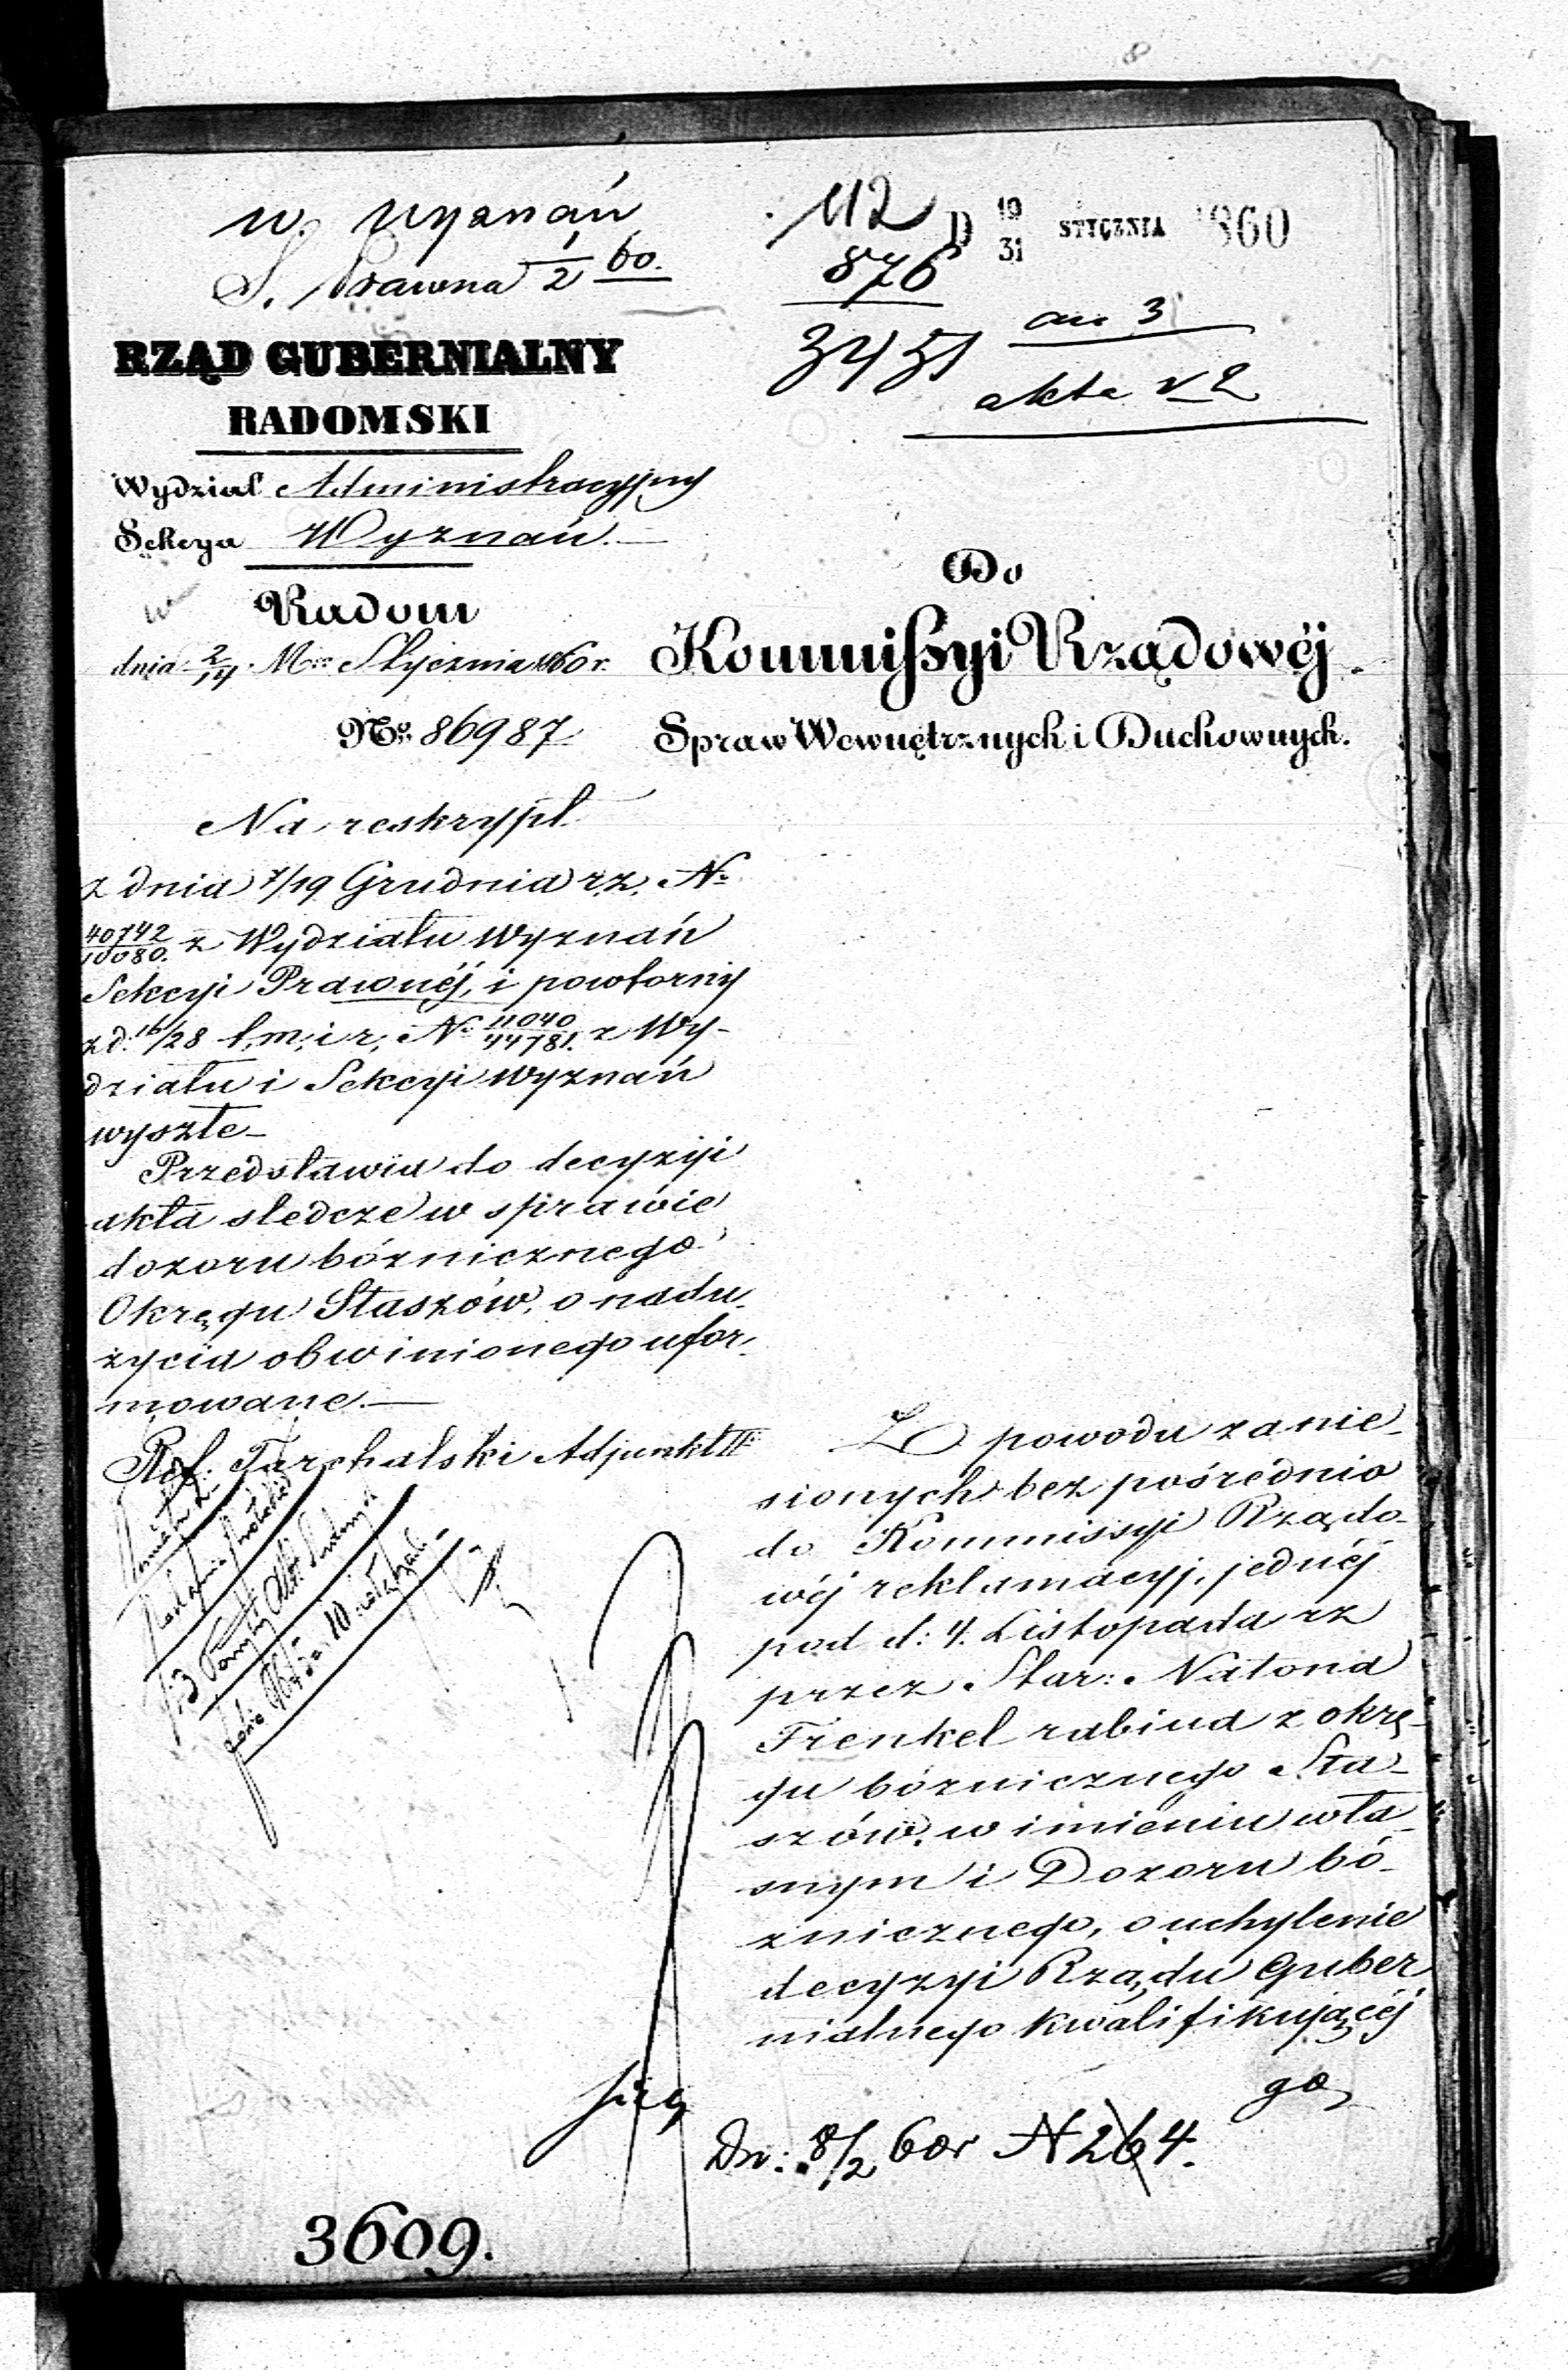 w. wyznań
S. Prawna 1/2 60.
112
876
3451
D 19/31 STYCZNIA 1860
an 3
akta v 2
RZĄD GUBERNIALNY
RADOMSKI
Wydział Administracyjny
Sekcya Wyznań.
w Radom
dnia 2/14 Mca Stycznia 1860 r.
No. 86987
Do
Kommissyi Rządowéj
Spraw Wewnętrznych i Duchownych.
Na reskrypt
z dnia 7/19 Grudnia r.z. No
40742/10080. z Wydziału Wyznań
Sekcyi Prawnéj, i powtorny
z d. 16/28 t.m. i r. No 11040/44781. z Wy-
działu i Sekcyi Wyznań
wyszłe-
Przedstawia do decyzyi
akta sledcze w sprawie
dozoru bóżnicznego
Okręgu Staszów, o nadu-
życia obwinionego ufor-
mowane.—
Ref: Tarchalski Adjunkt II
Z powodu zanie-
sionych bez pośrednio
do Kommissyi Rządo-
wéj reklamacyj, jednéj
pod d: 4. Listopada rz
przez Star: Natona
Frenkel rabina z okrę-
gu bóżnicznego Sta-
szów, w imieniu wła-
snym i Dozoru bó-
żnicznego, o uchylenie
decyzyi Rządu Guber
nialnego kwalifikującéj
go
Dn: 8/2 60r N 264.
3609.